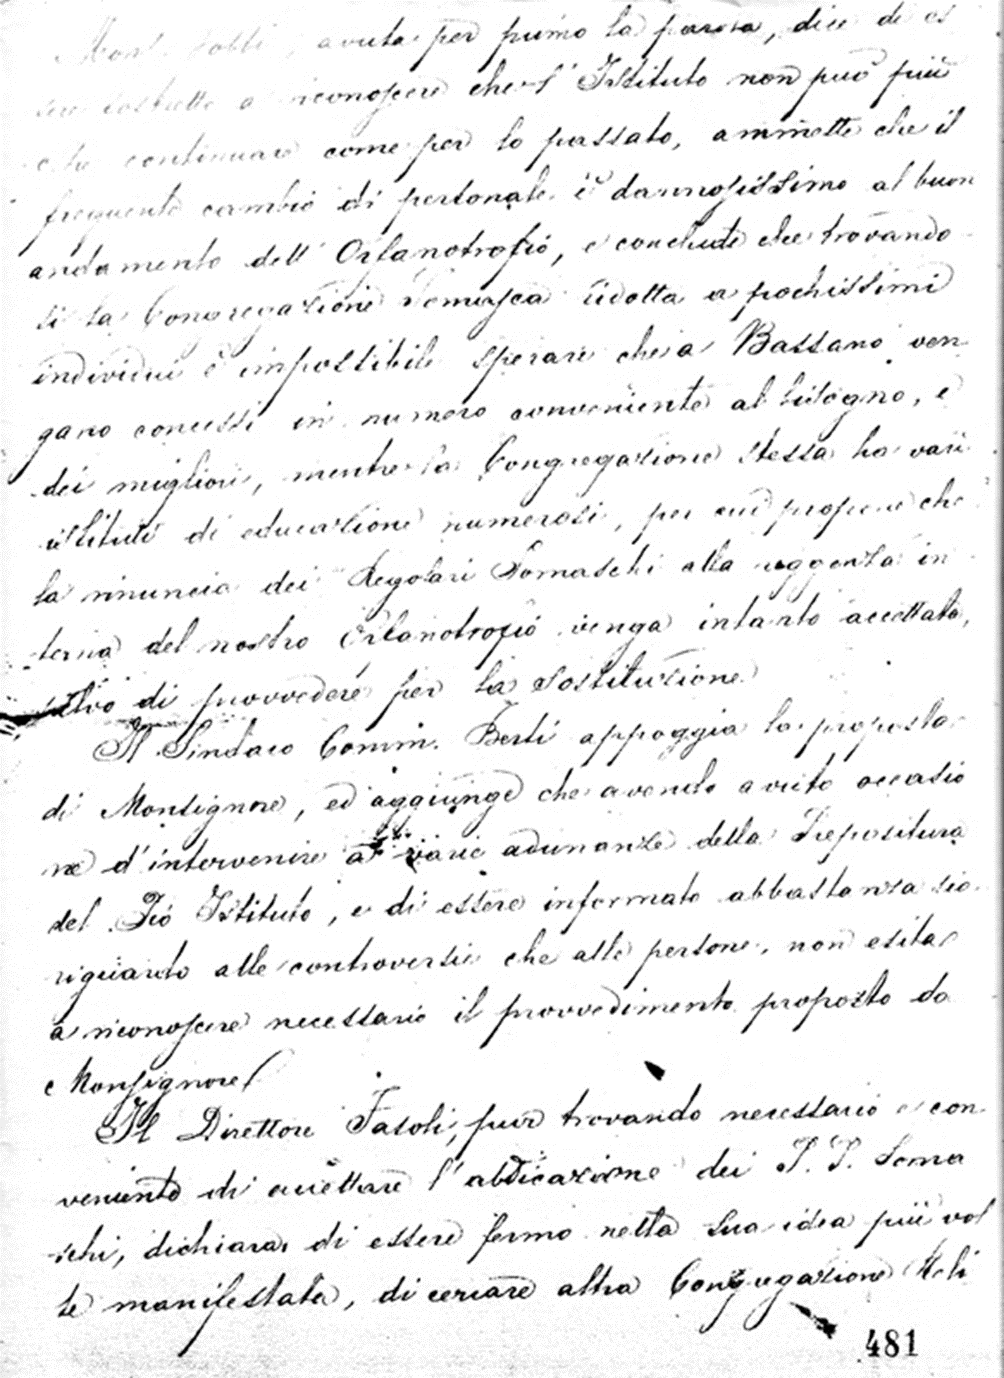 Mons. Gobbi, avuta per primo la parola, dice di es
sere costretto a riconoscere che l'Istituto non può più
che continuare come per lo passato, ammette che il
frequente cambio di personale è dannosissimo al buon
andamento dell'Orfanotrofio, e conclude che trovando-
si la Congregazione Somasca ridotta a pochissimi
individui è impossibile sperare che a Bassano ven-
gano concessi in numero conveniente al bisogno, e
dei migliori, mentre la Congregazione stessa ha varii
istituti di educazione numerosi, per cui propone che
la rinuncia dei Regolari Somaschi alla reggenza in-
terna del nostro Orfanotrofio venga intanto accettata,
salvo di provvedere per la sostituzione.
Il Sindaco Comm. Berti appoggia la proposta
di Monsignore, ed aggiunge che avendo avuto occasio
ne d'intervenire a varie adunanze della Prepositura
del Pio Istituto, e di essere informato abbastanza sia
riguardo alle controversie che alle persone, non esita
a riconoscere necessario il provvedimento proposto da
Monsignore.
Il Direttore Fasoli, pur trovando necessario e con-
veniente di accettare l'abdicazione dei P. P. Soma
schi, dichiara di essere fermo nella sua idea più vol
te manifestata, di cercare altra Congregazione Reli
481